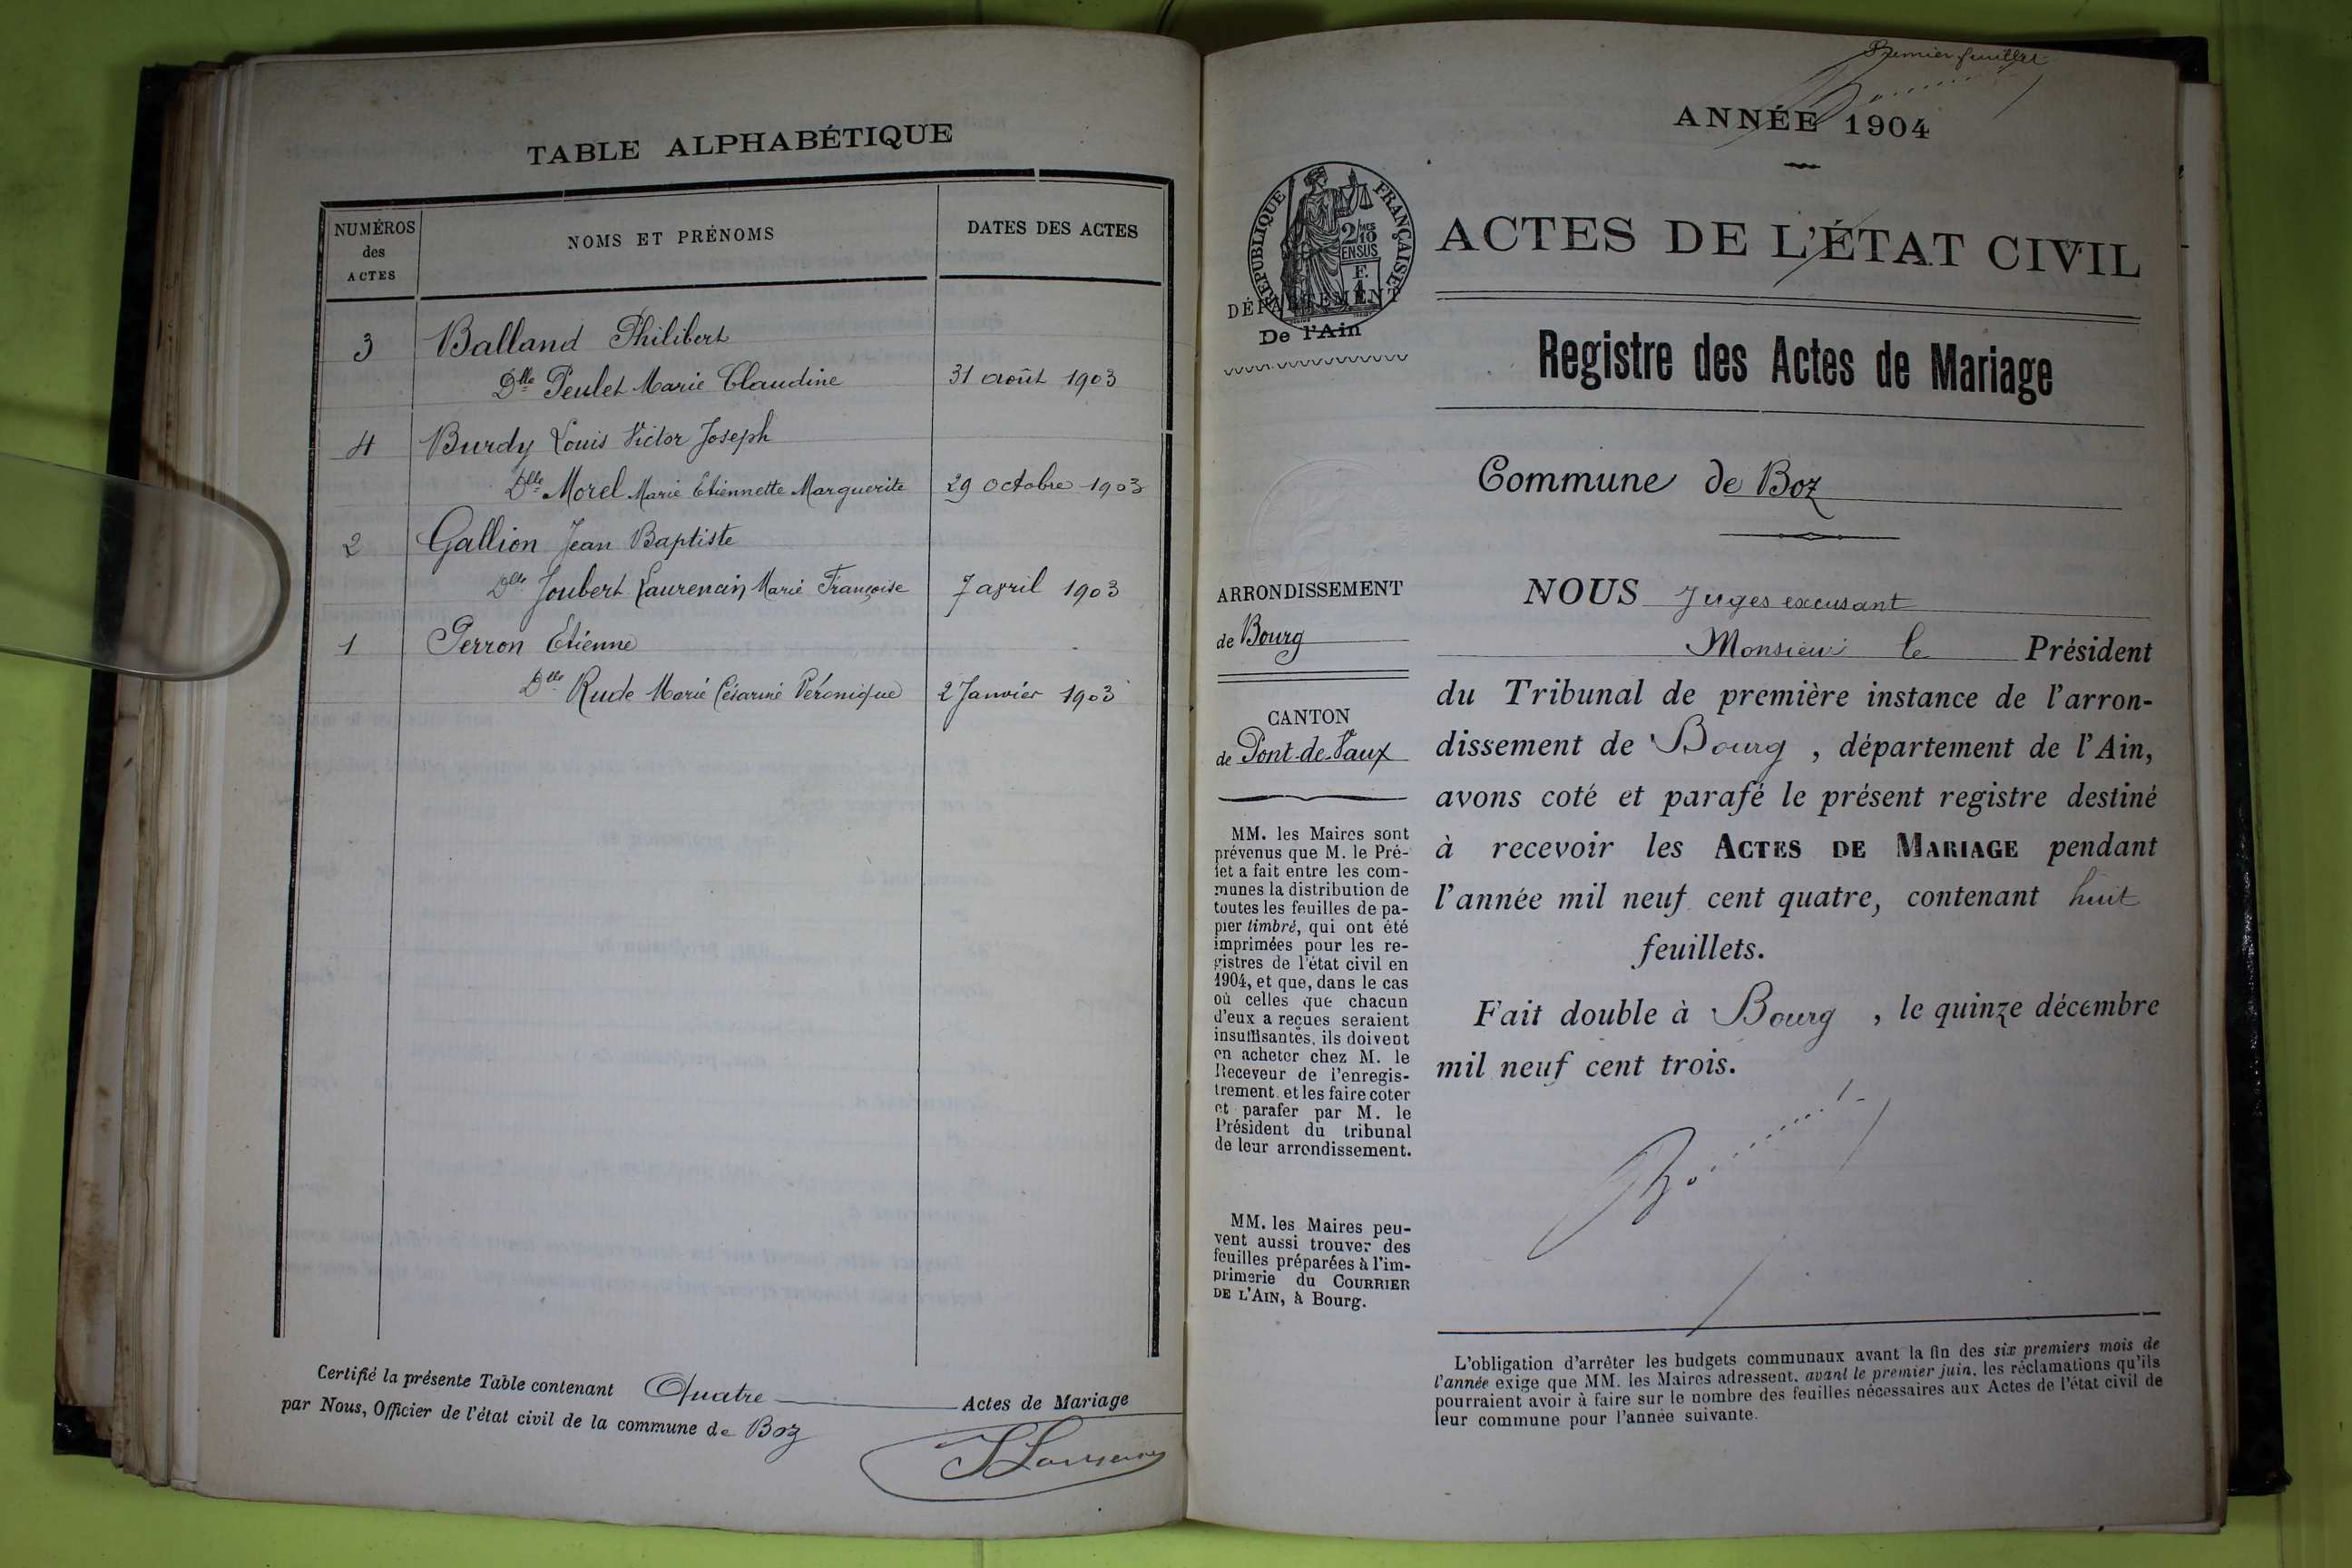 TABLE ALPHABÉTIQUE
NUMÉROS
des
ACTES
NOMS ET PRÉNOMS
DATES DES ACTES
3 Balland Philibert
Dlle Peulet Marie Claudine 31 août 1903
4 Burdy Louis Victor Joseph
Dlle Morel Marie Etiennette Marguerite 29 octobre 1903
2 Gallion Jean Baptiste
Dlle Joubert Laurencin Marie Françoise 7 avril 1903
1 Perron Etienne
Dlle Rude Marie Césarine Véronique 2 Janvier 1903
Certifié la présente Table contenant Quatre Actes de Mariage
par Nous, Officier de l'état civil de la commune de Boz
Premier feuillet
ANNÉE 1904
RÉPUBLIQUE FRANÇAISE
2/10
EN SUS
F.
1
DÉPARTEMENT
De l'Ain
ACTES DE L'ÉTAT CIVIL
Registre des Actes de Mariage
Commune de Boz
ARRONDISSEMENT
de Bourg
CANTON
de Pont-de-Vaux
MM. les Maires sont
prévenus que M. le Pré-
fet a fait entre les com-
munes la distribution de
toutes les feuilles de pa-
pier timbré, qui ont été
imprimées pour les re-
gistres de l'état civil en
1904, et que, dans le cas
où celles que chacun
d'eux a reçues seraient
insuffisantes, ils doivent
en acheter chez M. le
Receveur de l'enregis-
trement. et les faire coter
et parafer par M. le
Président du tribunal
de leur arrondissement.
MM. les Maires peu-
vent aussi trouver des
feuilles préparées à l'im-
primerie du COURRIER
DE L'AIN, à Bourg.
NOUS Juges excusant
Monsieur le Président
du Tribunal de première instance de l'arron-
dissement de Bourg, département de l'Ain,
avons coté et parafé le présent registre destiné
à recevoir les ACTES DE MARIAGE pendant
l'année mil neuf cent quatre, contenant huit
feuillets.
Fait double à Bourg, le quinze décembre
mil neuf cent trois.
L'obligation d'arrêter les budgets communaux avant la fin des six premiers mois de
l'année exige que MM. les Maires adressent, avant le premier juin, les réclamations qu'ils
pourraient avoir à faire sur le nombre des feuilles nécessaires aux Actes de l'état civil de
leur commune pour l'année suivante.